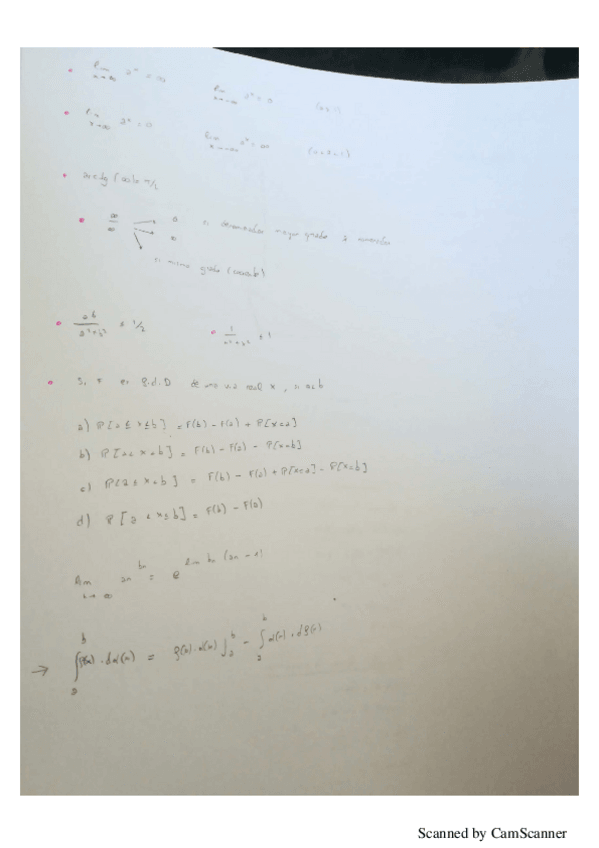 lim x→∞ aˣ = ∞ lim x→-∞ aˣ = 0 (a>1)
lim x→∞ aˣ = 0 lim x→-∞ aˣ = ∞
arctg (∞) = π/2
∞/∞ → 0 si denominador mayor grado q numerador
→ ∞
si mismo grado
ab/(a²+b²) 1/2
Si F es f.d.D de una v.a real X, si a<b
a) P[a ≤ x ≤ b] = F(b) - F(a) + P[x=a]
b) P[a < x < b] = F(b) - F(a) - P[x=b]
c) P[a ≤ x < b] = F(b) - F(a) + P[x=a] - P[x=b]
d) P[a < x ≤ b] = F(b) - F(a)
lim n→∞ an^bn = e^lim bn (an - 1)
→ ∫ₐᵇ f(x)·dα(x) = f(x)·α(x)]ₐᵇ - ∫ₐᵇ α(x)·df(x)
Scanned by CamScanner